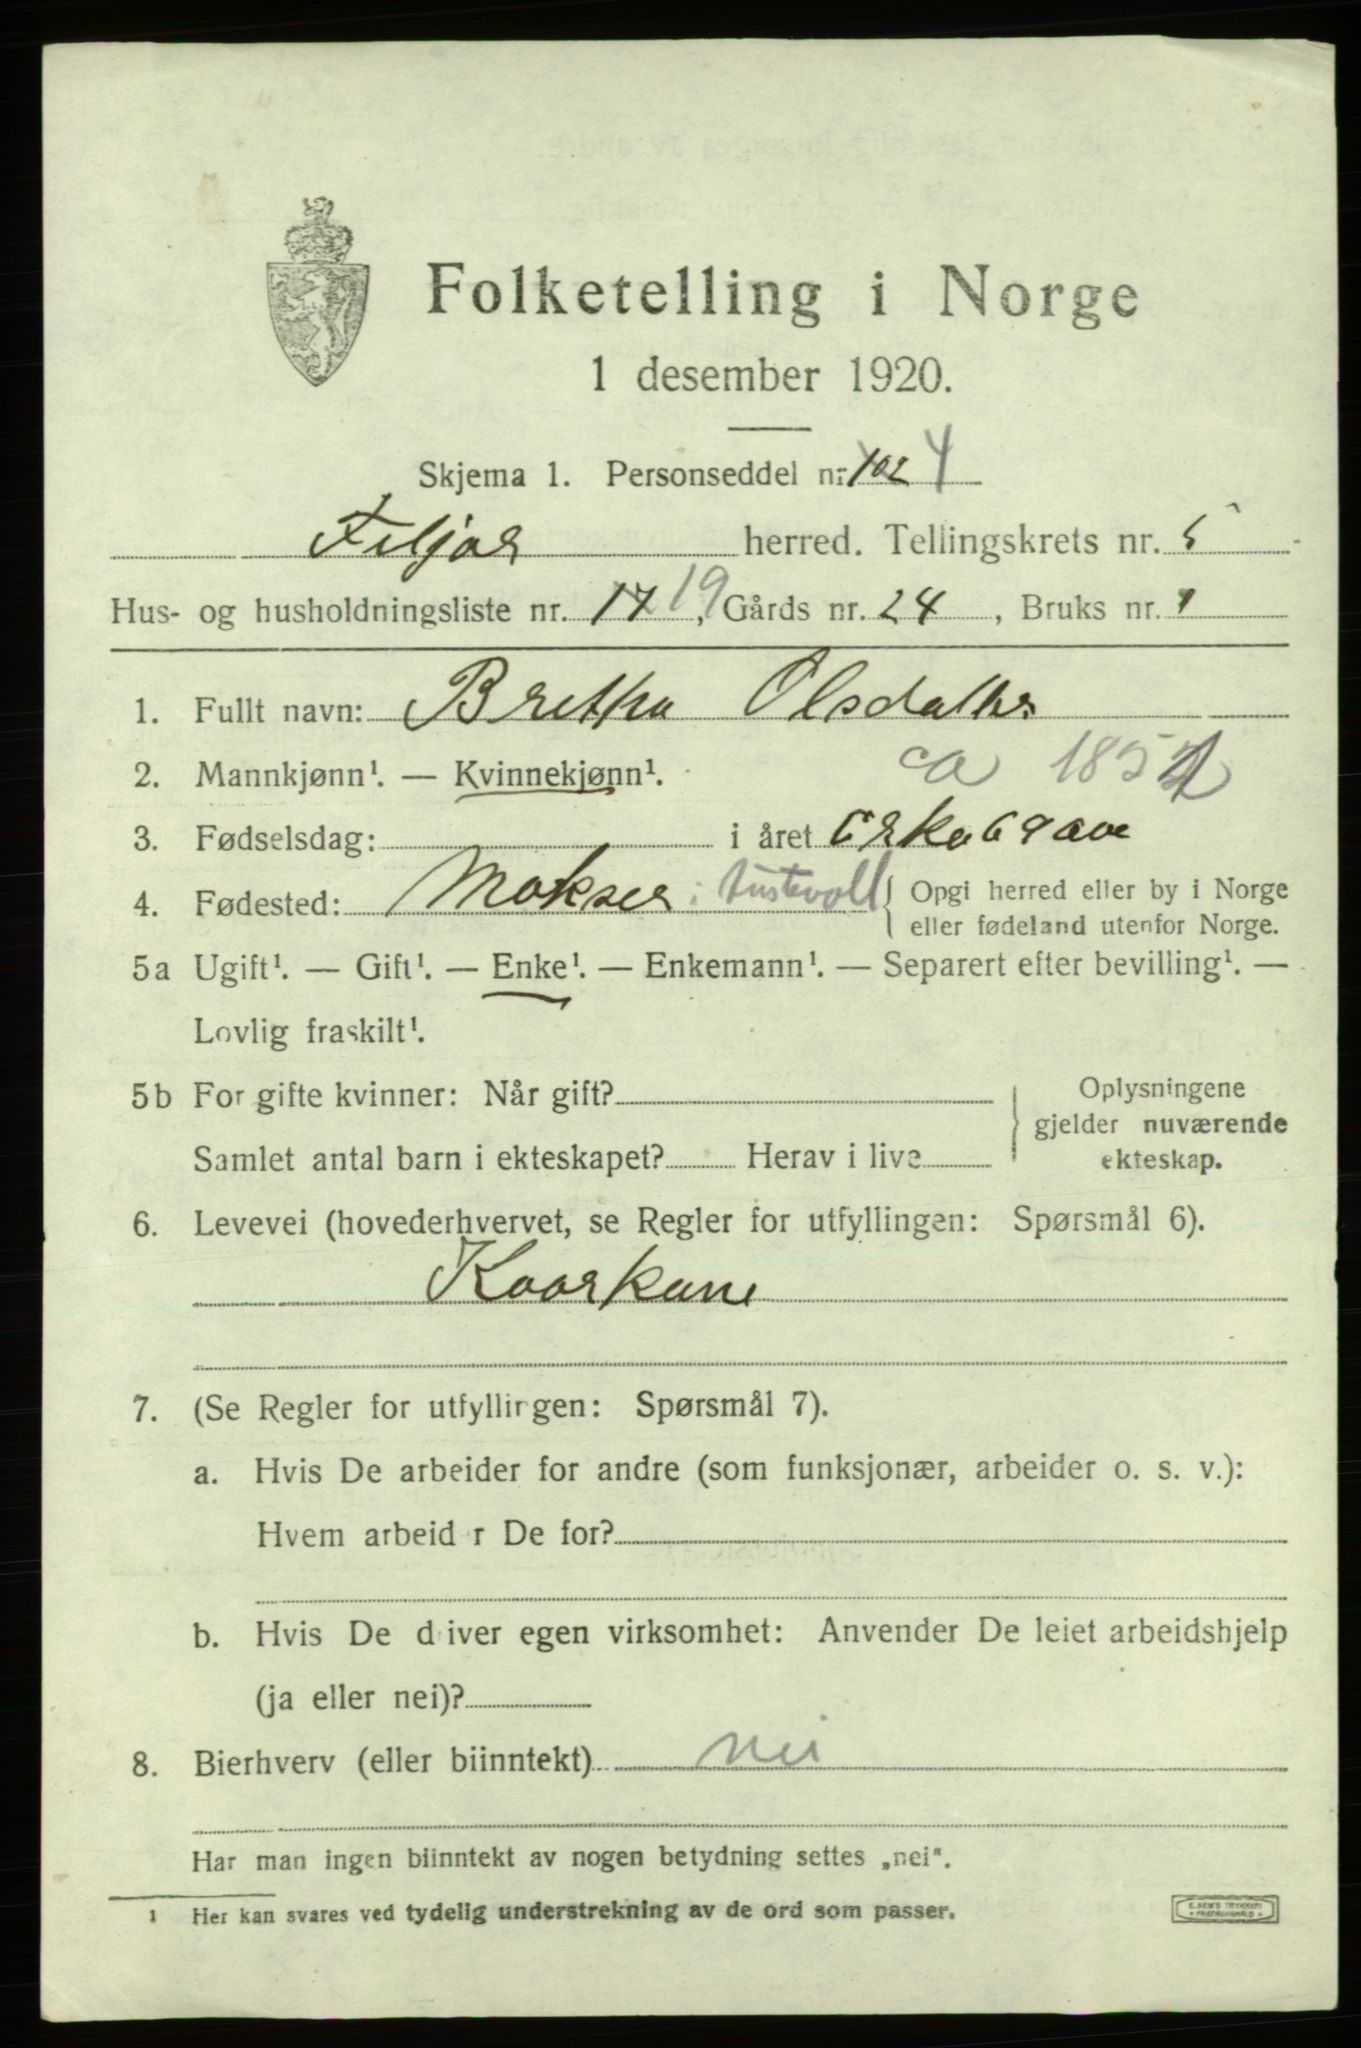 Folketelling i Norge
1 desember 1920.
Skjema 1. Personseddel nr. 102 4
Fitjar herred. Tellingskrets nr. 5
Hus- og husholdningsliste nr. 17 19, Gårds nr. 24, Bruks nr. 1
1. Fullt navn: Bretha Olsdatter
2. Mannkjønn¹. — Kvinnekjønn¹. ca 185
3. Fødselsdag: i året Cirka 69 aar
4. Fødested: Møkster i Austevoll { Opgi herred eller by i Norge
eller fødeland utenfor Norge.
5a Ugift¹. — Gift¹. — Enke¹. — Enkemann¹. — Separert efter bevilling¹. —
Lovlig fraskilt¹.
5b For gifte kvinner: Når gift? Oplysningene
gjelder nuværende
Samlet antal barn i ekteskapet? Herav i live ekteskap.
6. Levevei (hovederhvervet, se Regler for utfyllingen: Spørsmål 6).
Kaarkone
7. (Se Regler for utfyllingen: Spørsmål 7).
a. Hvis De arbeider for andre (som funksjonær, arbeider o. s. v.):
Hvem arbeid r De for?
b. Hvis De d iver egen virksomhet: Anvender De leiet arbeidshjelp
(ja eller nei)?
8. Bierhverv (eller biinntekt) nei
Har man ingen biinntekt av nogen betydning settes „nei".
1 Her kan svares ved tydelig understrekning av de ord som passer.